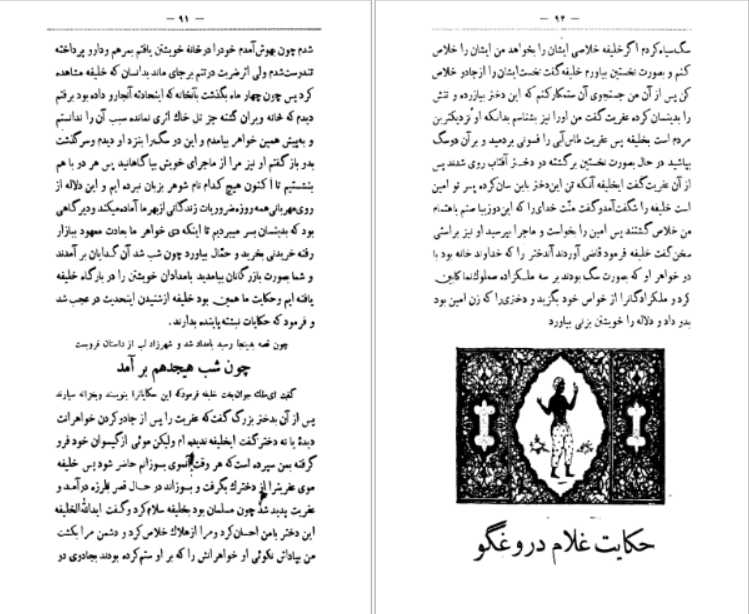 — ۹۱ —
شدم چون بهوش آمدم خود را در خانهٔ خویشتن یافتم بمرهم و دارو پرداخته
تندرست شدم ولی اثر ضربت در تنم بر جای ماند بدانسان که خلیفه مشاهده
کرد پس چون چهار ماه بگذشت بآنخانه که اینحادثه آنجا رو داده بود برفتم
دیدم که خانه ویران گشته جز تل خاک اثری نمانده سبب آن را ندانستم
و به پیش همین خواهر بیامدم و این دو سگ را بنزد او دیدم و سرگذشت
بدو باز گفتم او نیز مرا از ماجرای خویش بیاگاهانید پس هر دو با هم
بنشستیم تا اکنون هیچ کدام نام شوهر بزبان نبرده ایم و این دلاله از
روی مهربانی همه روزه ضروریات زندگانی از بهر ما آماده میکند و دیرگاهی
بود که بدینسان بسر میبردیم تا اینکه دی خواهر ما بعادت معهود ببازار
رفته خریدنی بخرید و حمّال بیاورد چون شب شد آن گدایان بر آمدند
و شما بصورت بازرگانان بیامدید بامدادان خویشتن را در بارگاه خلیفه
یافته ایم و حکایت ما همین بود خلیفه از شنیدن اینحدیث در عجب شد
و فرمود که حکایات نبشته پاینده بدارند.
چون قصه بدینجا رسید بامداد شد و شهرزاد لب از داستان فروبست
چون شب هیجدهم بر آمد
گفت ای ملک جوان بخت خلیفه فرمود که این حکایاترا بنویسند و بخزانه سپارند
پس از آن بدختر بزرگ گفت که عفریت را پس از جادو کردن خواهرانت
دیدهٔ یا نه دختر گفت ایخلیفه ندیده ام ولیکن موئی از گیسوان خود فرو
گرفته بمن سپرده است که هر وقت آنموی بسوزانم حاضر شود پس خلیفه
موی عفریترا از دخترک بگرفت و بسوزاند در حال قصر بلرزه درآمد و
عفریت پدید شد چون مسلمان بود بخلیفه سلام کرد و گفت ایدالله الخلیفه
این دختر با من احسان کرد و مرا از هلاک خلاص کرد و دشمن مرا بکشت
من بپاداش نکوئی او خواهرانش را که بر او ستم کرده بودند بجادوی دو
— ۹۲ —
سگ سیاه کردم اگر خلیفه خلاصی ایشان را بخواهد من ایشان را خلاص
کنم و بصورت نخستین بیاورم خلیفه گفت نخست ایشان را از جادو خلاص
کن پس از آن من جستجوی آن ستمکار کنم که این دختر بیازرده و تنش
را بدینسان کرده عفریت گفت من اورا نیز بشناسم بدانکه او نزدیکترین
مردم است بخلیفه پس عفریت طاس آبی را فسونی بردمید و بر آن دو سگ
بپاشید در حال بصورت نخستین برگشته دو دختر آفتاب روی شدند پس
از آن عفریت گفت ایخلیفه آنکه تن این دختر باین سان کرده پسر تو امین
است خلیفه را شگفت آمد و گفت منّت خدای را که این دو زیبا صنم باهتمام
من خلاص گشتند پس امین را بخواست و ماجرا بپرسید او نیز براستی
سخن گفت خلیفه فرمود قاضی آوردند آندختر را که خداوند خانه بود با
دو خواهر او که بصورت سگ بودند بر سه ملکزاده صعلوک نما کابین
کرد و ملکزادگانرا از خواص خود بگزید و دختری را که زن امین بود
بدو داد و دلاله را خویشتن بزنی بیاورد
حکایت غلام دروغگو